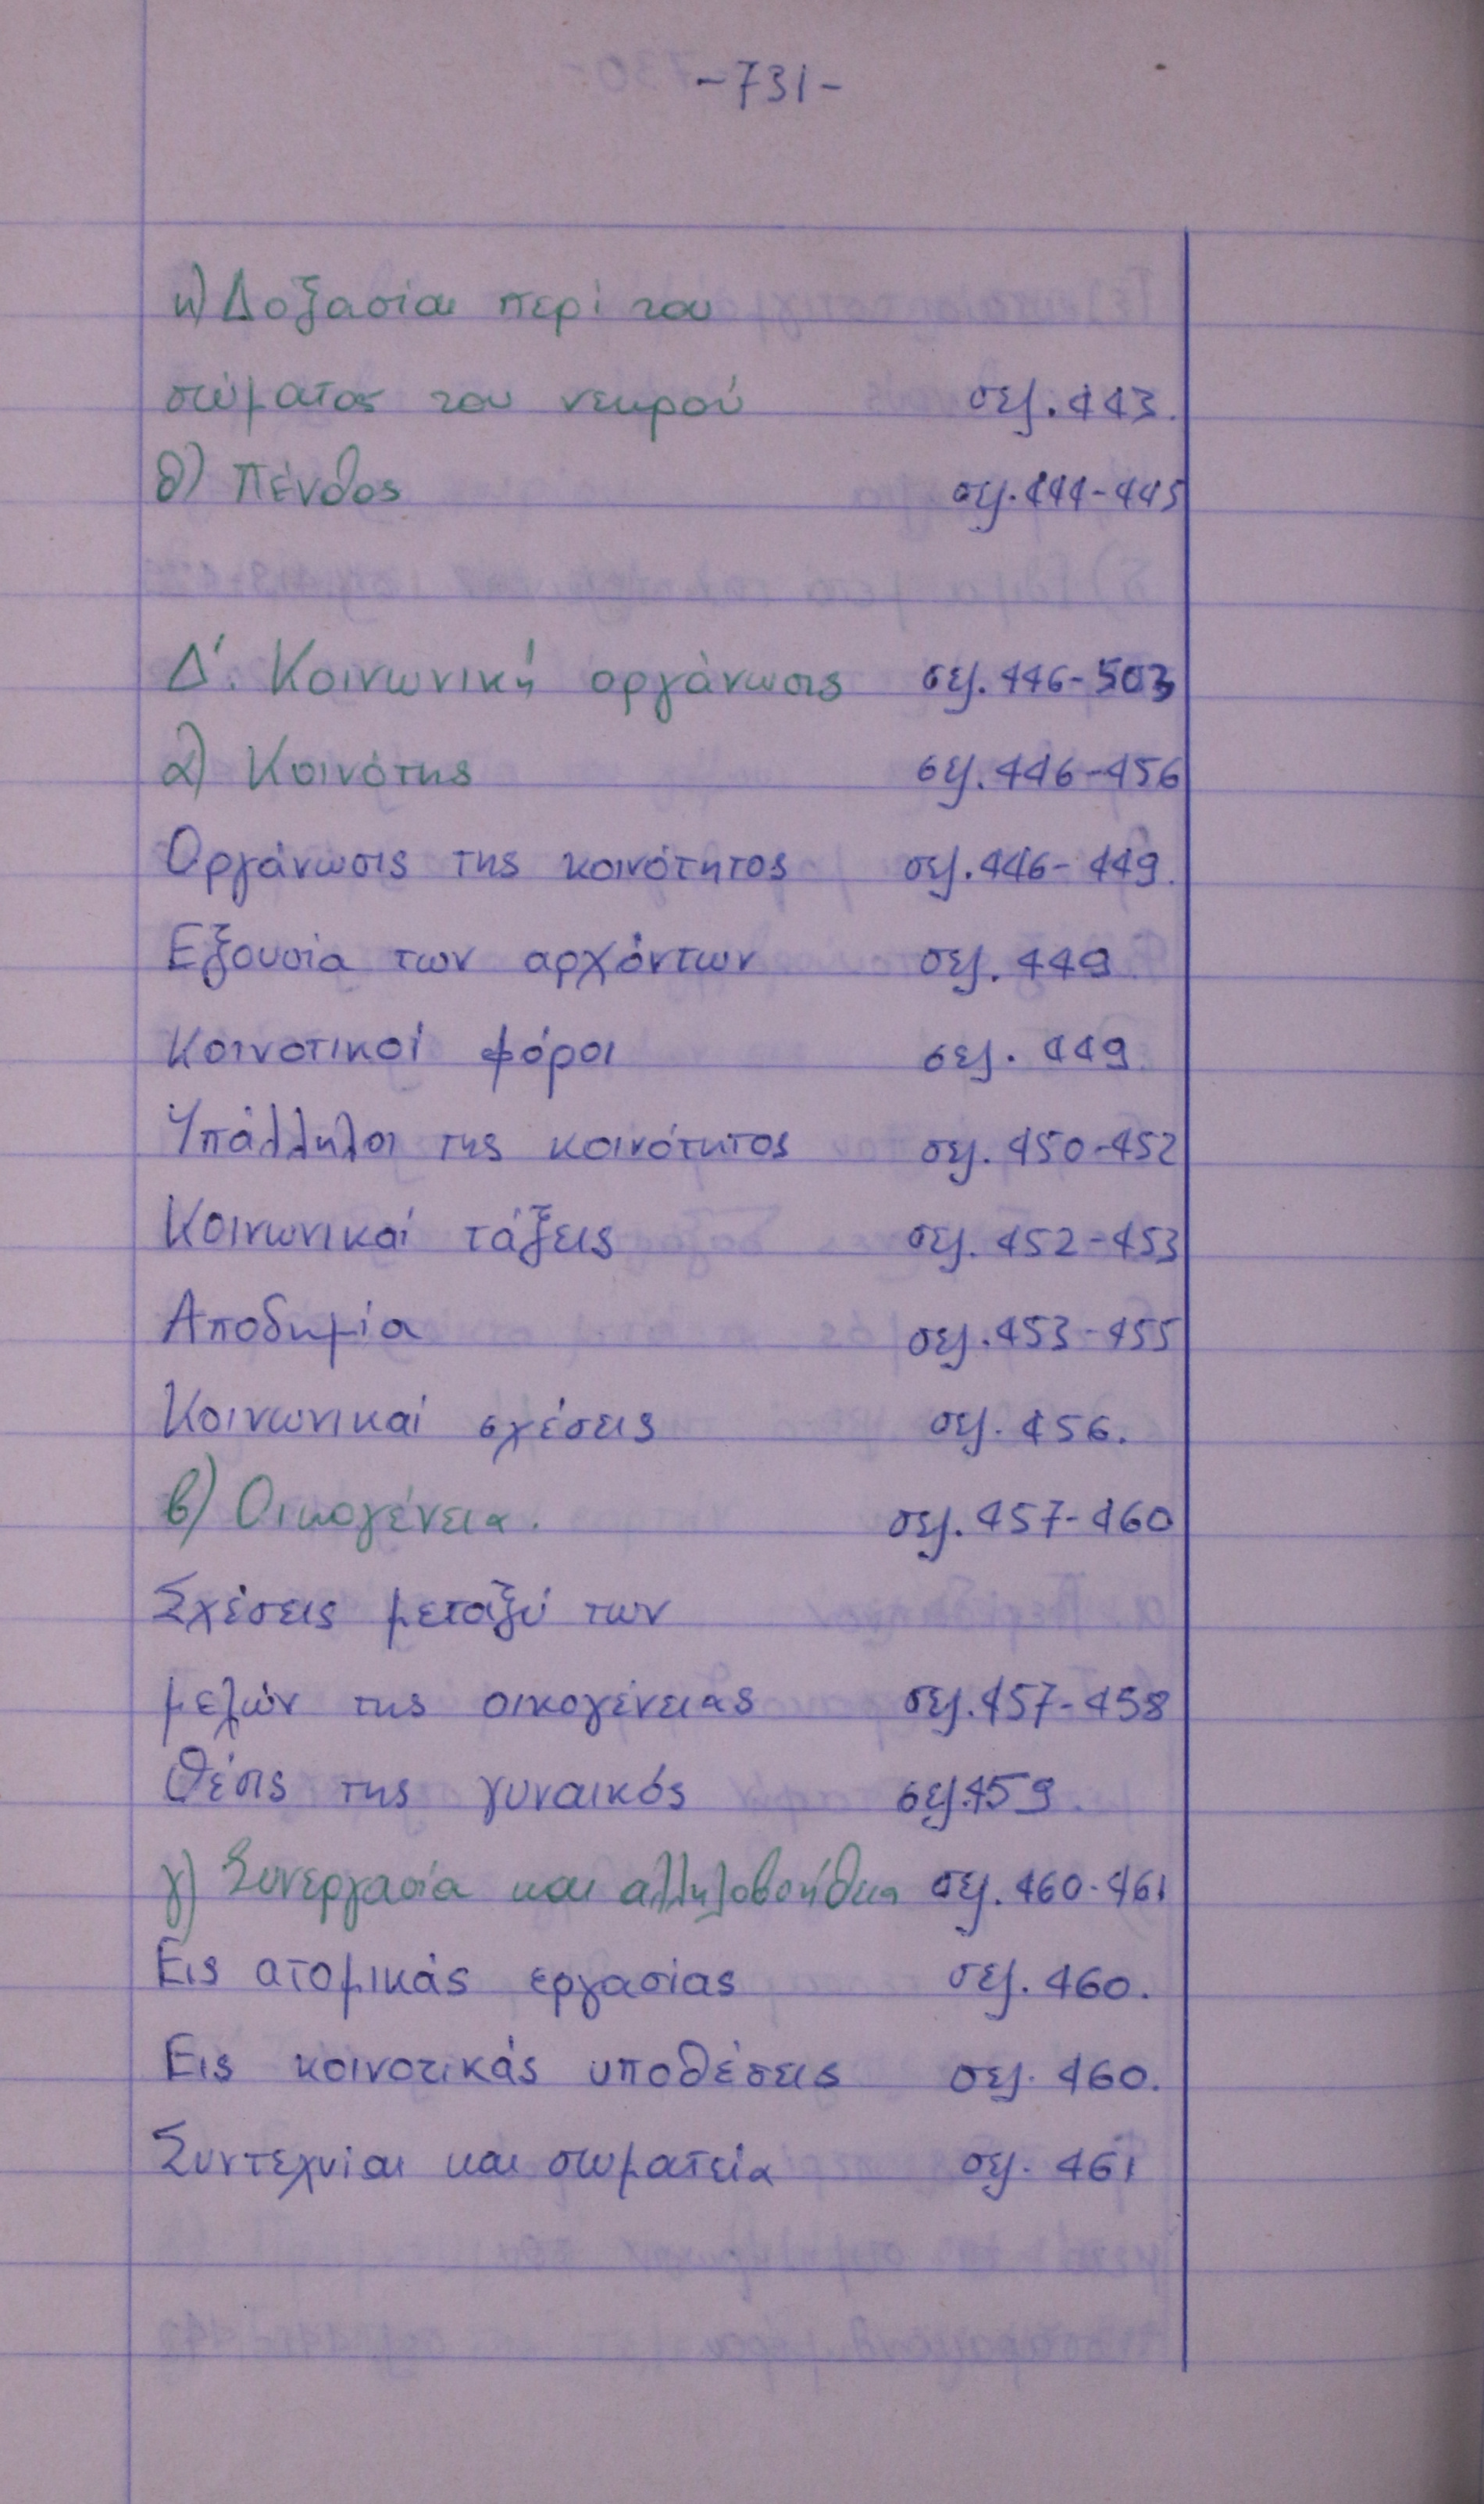 -731-
η) Δοξασίαι περί του
σώματος του νεκρού σελ. 443.
θ) Πένθος σελ. 444-445
Δ΄. Κοινωνική οργάνωσις σελ. 446-503
α) Κοινότης σελ. 446-456
Οργάνωσις της κοινότητος σελ. 446-449.
Εξουσία των αρχόντων σελ. 449
Κοινοτικοί φόροι σελ. 449
Υπάλληλοι της κοινότητος σελ. 450-452
Κοινωνικαί τάξεις σελ. 452-453
Αποδημία σελ. 453-455
Κοινωνικαί σχέσεις σελ. 456.
β) Οικογένεια. σελ. 457-460
Σχέσεις μεταξύ των
μελών της οικογένειας σελ. 457-458
Θέσις της γυναικός σελ. 459
γ) Συνεργασία και αλληλοβοήθεια σελ. 460-461
Εις ατομικάς εργασίας σελ. 460.
Εις κοινοτικάς υποθέσεις σελ. 460.
Συντεχνίαι και σωματεία σελ. 461